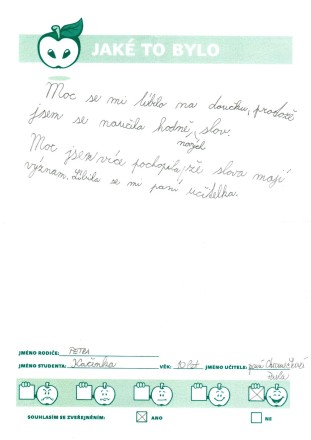 JAKÉ TO BYLO
Moc se mi líbilo na doučku, protože
jsem se naučila hodně nových slov.
Moc jsem více pochopila, že slova mají
význam. Líbila se mi paní učitelka.
JMÉNO RODIČE: PETRA
JMÉNO STUDENTA: Kačinka VĚK: 12 let JMÉNO UČITELE: paní
Pavla
SOUHLASÍM SE ZVEŘEJNĚNÍM: ANO NE